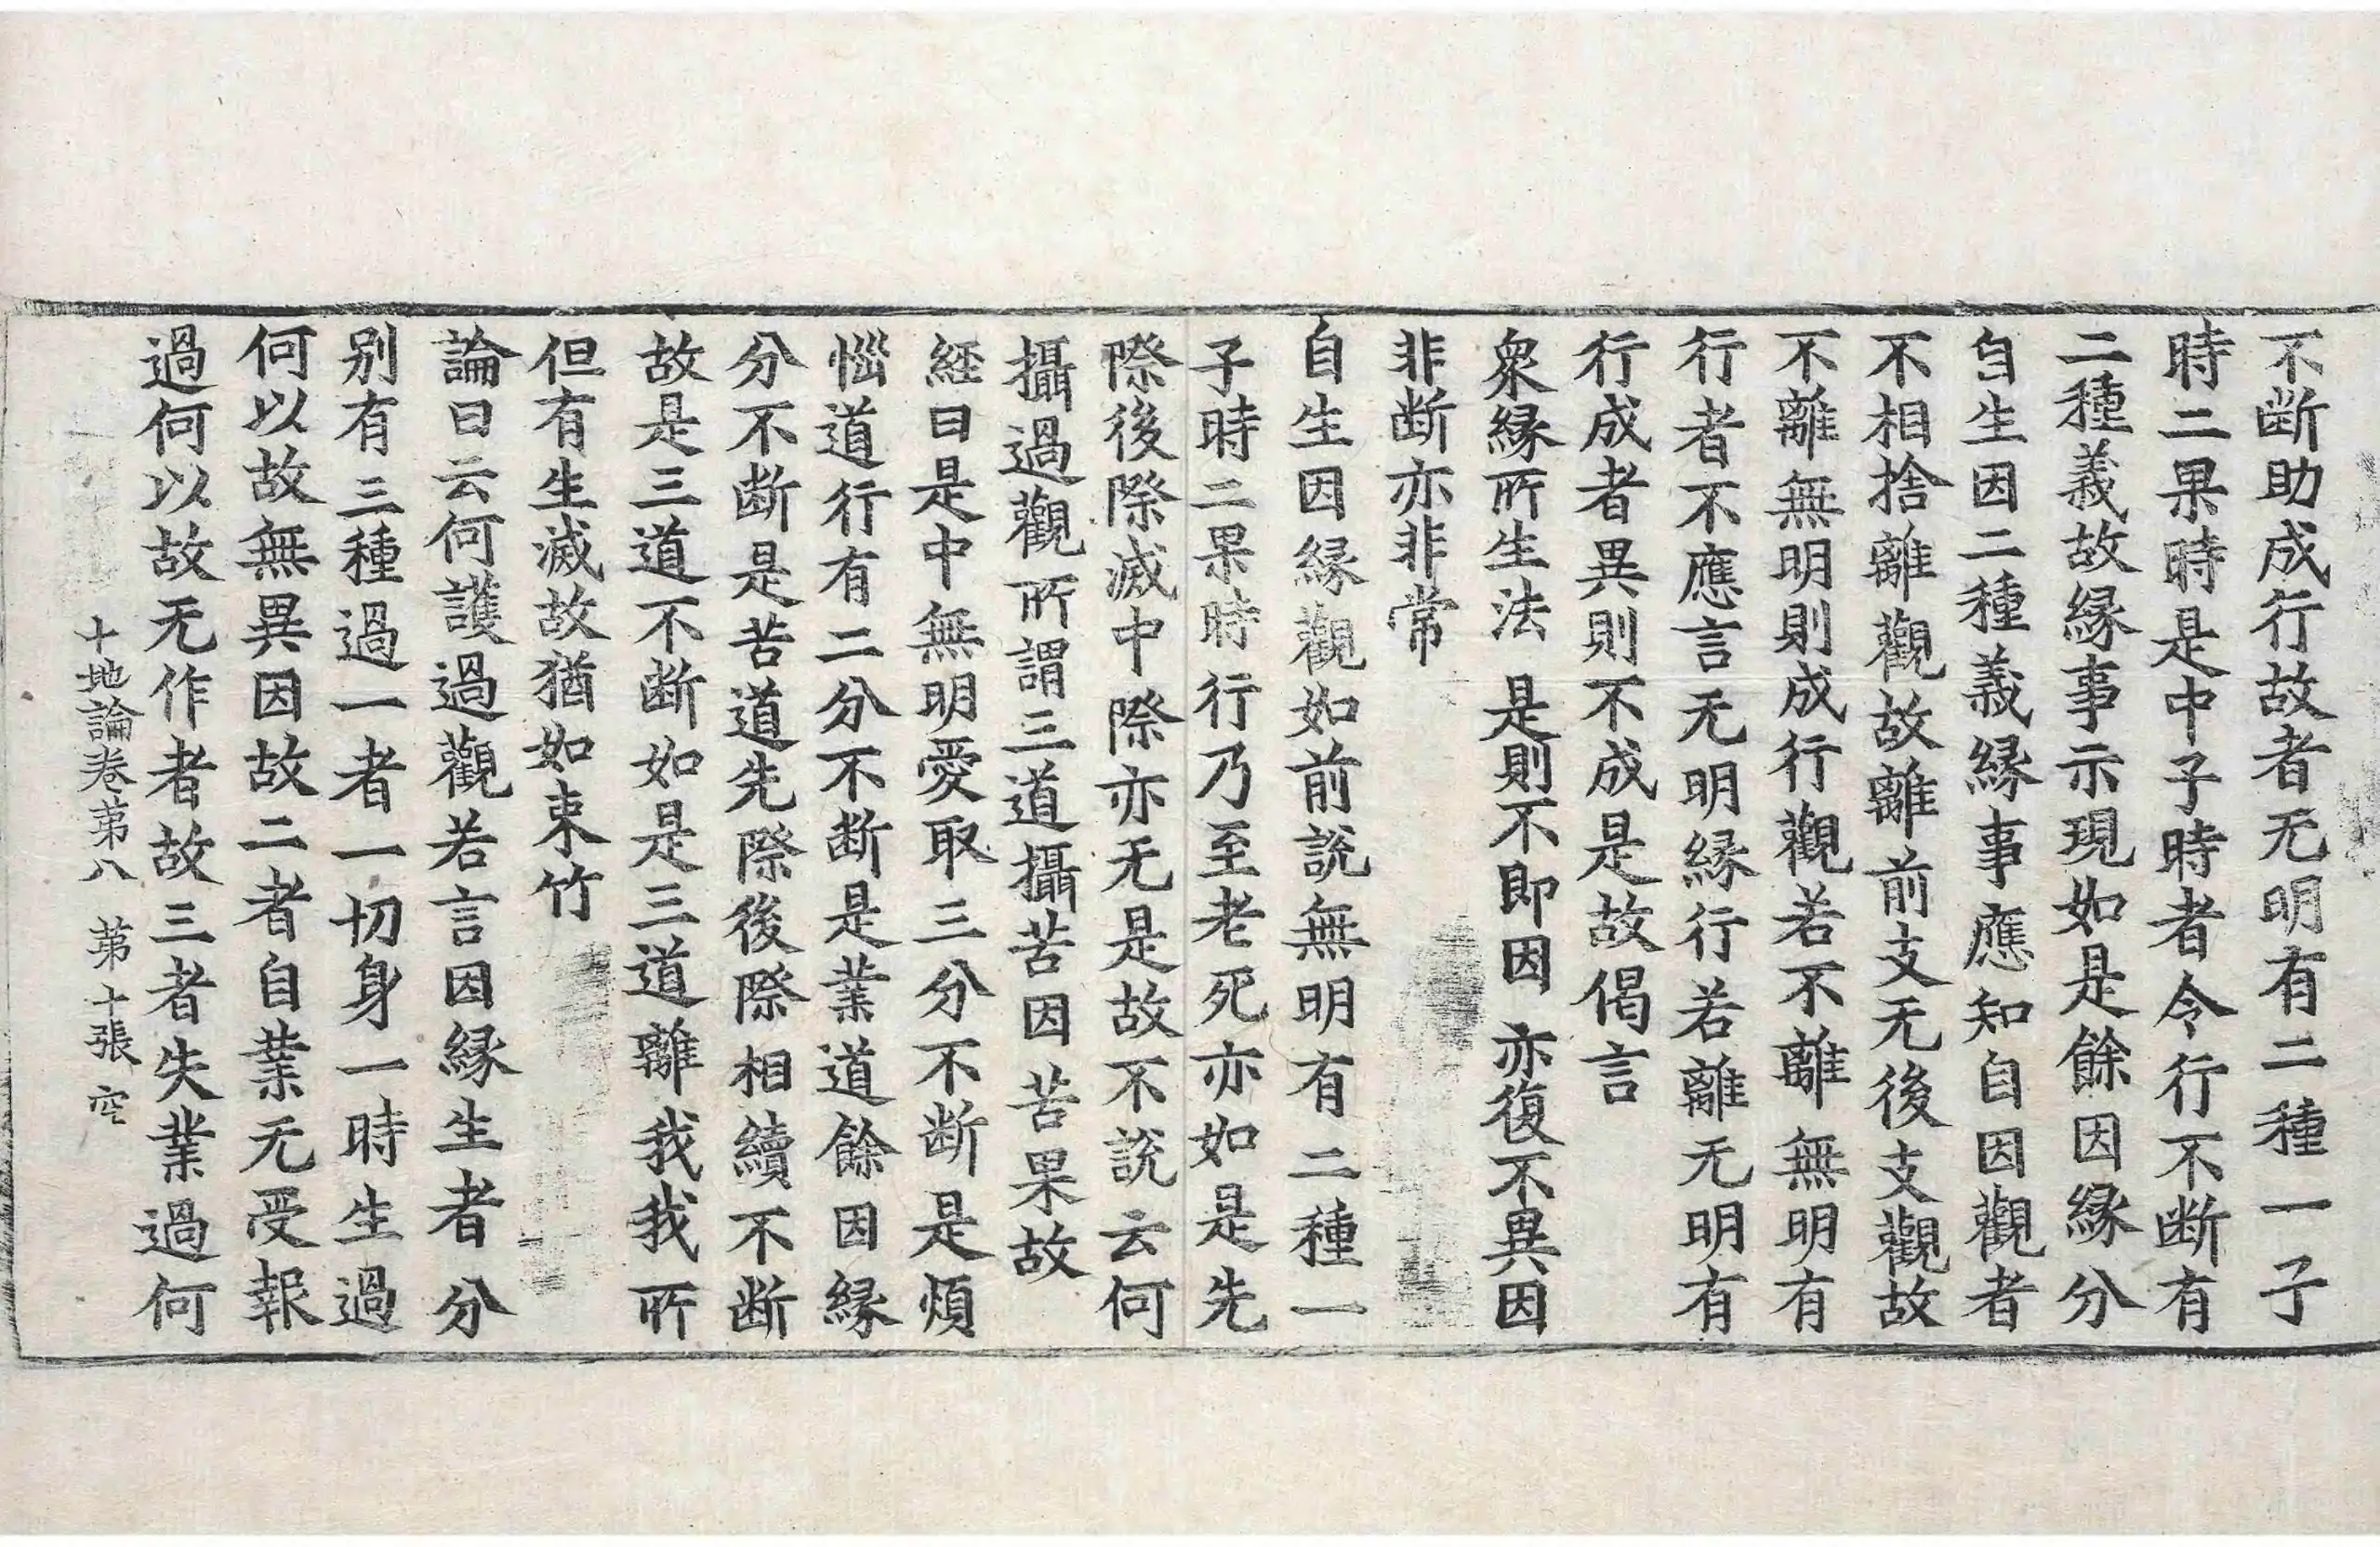 不断助成行故者无明有二種一子
時二果時是中子時者令行不断有
二種義故緣事示現如是餘因緣分
自生因二種義緣事應知自因觀者
不相捨離觀故離前支无後支觀故
不離無明則成行觀若不離無明有
行者不應言无明緣行若離无明有
行成者異則不成是故偈言
衆緣所生法 是則不即因 亦復不異因
非断亦非常
自生因緣觀如前說無明有二種一
子時二果時行乃至老死亦如是先
際後際滅中際亦无是故不說云何
攝過觀所謂三道攝苦因苦果故
経曰是中無明愛取三分不断是煩
惱道行有二分不断是業道餘因緣
分不断是苦道先際後際相續不断
故是三道不断如是三道離我我所
但有生滅故猶如束竹
論曰云何護過觀若言因緣生者分
别有三種過一者一切身一時生過
何以故無異因故二者自業无受報
過何以故无作者故三者失業過何
十地論卷第八 第十張 空